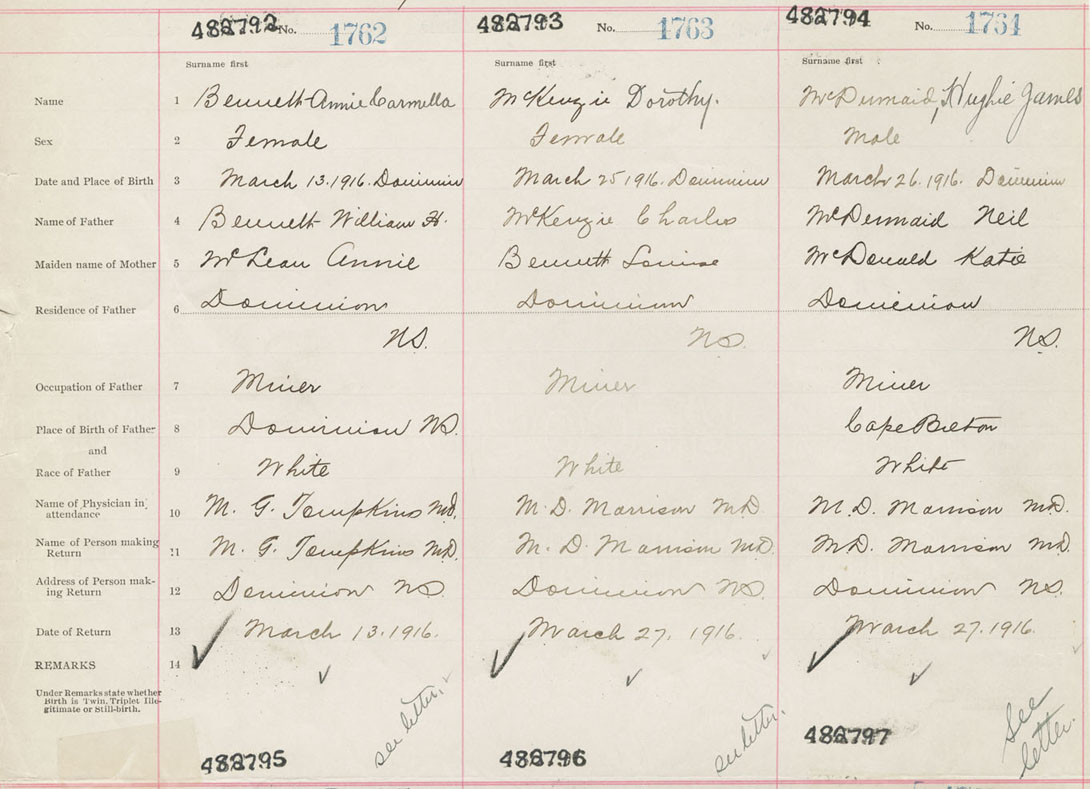 482792 No. 1762 482793 No. 1763 482794 No. 1764
Surname first Surname first Surname first
Name 1 Bennett Annie Carmella McKenzie Dorothy. McDermaid, Hughie James
Sex 2 Female Female Male
Date and Place of Birth 3 March 13. 1916. Dominion March 25 1916. Dominion March 26. 1916. Dominion
Name of Father 4 Bennett William H. McKenzie Charles McDermaid Neil
Maiden name of Mother 5 McLean Annie Bennett Louise McDonald Katie
Residence of Father 6 Dominion Dominion Dominion
NS. NS. NS.
Occupation of Father 7 Miner Miner Miner
Place of Birth of Father 8 Dominion NS. Cape Breton
and
Race of Father 9 White White White
Name of Physician in attendance 10 M. G. Tompkins MD. M. D. Morrison MD. M. D. Morrison MD.
Name of Person making Return 11 M. G. Tompkins MD. M. D. Morrison MD. MD. Morrison MD.
Address of Person making Return 12 Dominion NS. Dominion NS. Dominion NS.
Date of Return 13 March 13. 1916. March 27, 1916. March 27. 1916.
REMARKS 14
Under Remarks state whether
Birth is Twin, Triplet Ille-
gitimate or Still-birth.
see letter. see letter. See letter.
482795 482796 482797